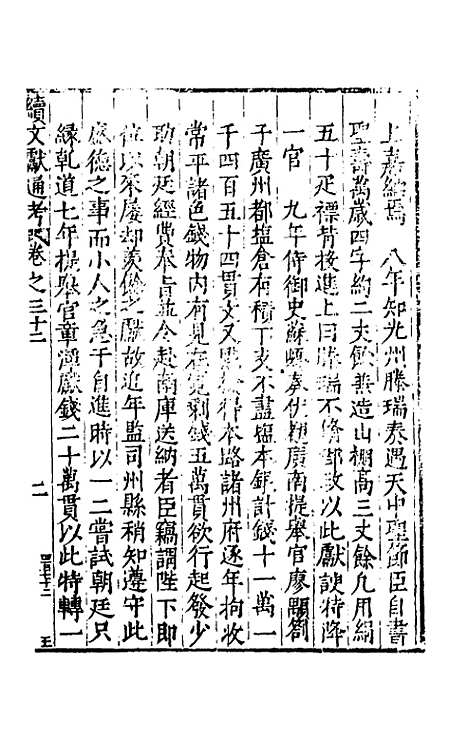 上嘉納焉　八年知光州滕瑞奏遇天申聖節臣自書
聖壽萬歲四字約二丈餘善造山棚高三丈餘凡用絹
五十疋標背投進上曰滕瑞不修郡政以此獻諛特降
一官　九年侍御史蘇嶠奏伏覩廣南提舉官廖顒劄
子廣州都塩倉有積丁支不盡塩本錢計錢十一萬一
千四百五十四貫文又得本路諸州府逐年拘收
常平諸色錢物内有見在寬剩錢五萬貫欲行起發少
助朝廷經費奉旨並令赴南庫送納者臣竊謂陛下即
位以來屢却羨餘之獻故近年監司州縣稍知遵守此
盛德之事而小人之急于自進時以一二嘗試朝廷只
緣乾道七年提舉官章潭獻錢二十萬貫以此特轉一
續文獻通考卷之三十二
二